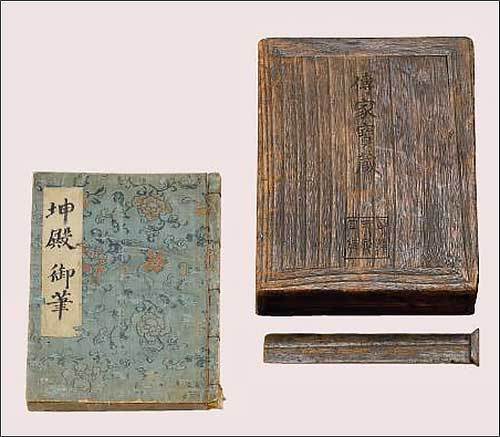 坤殿御筆
傳家寶藏